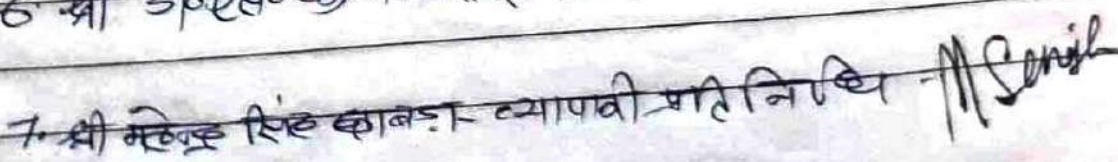 6 श्री
7. श्री महेन्द्र सिंह छाबड़ा व्यापारी प्रतिनिधि M Singh